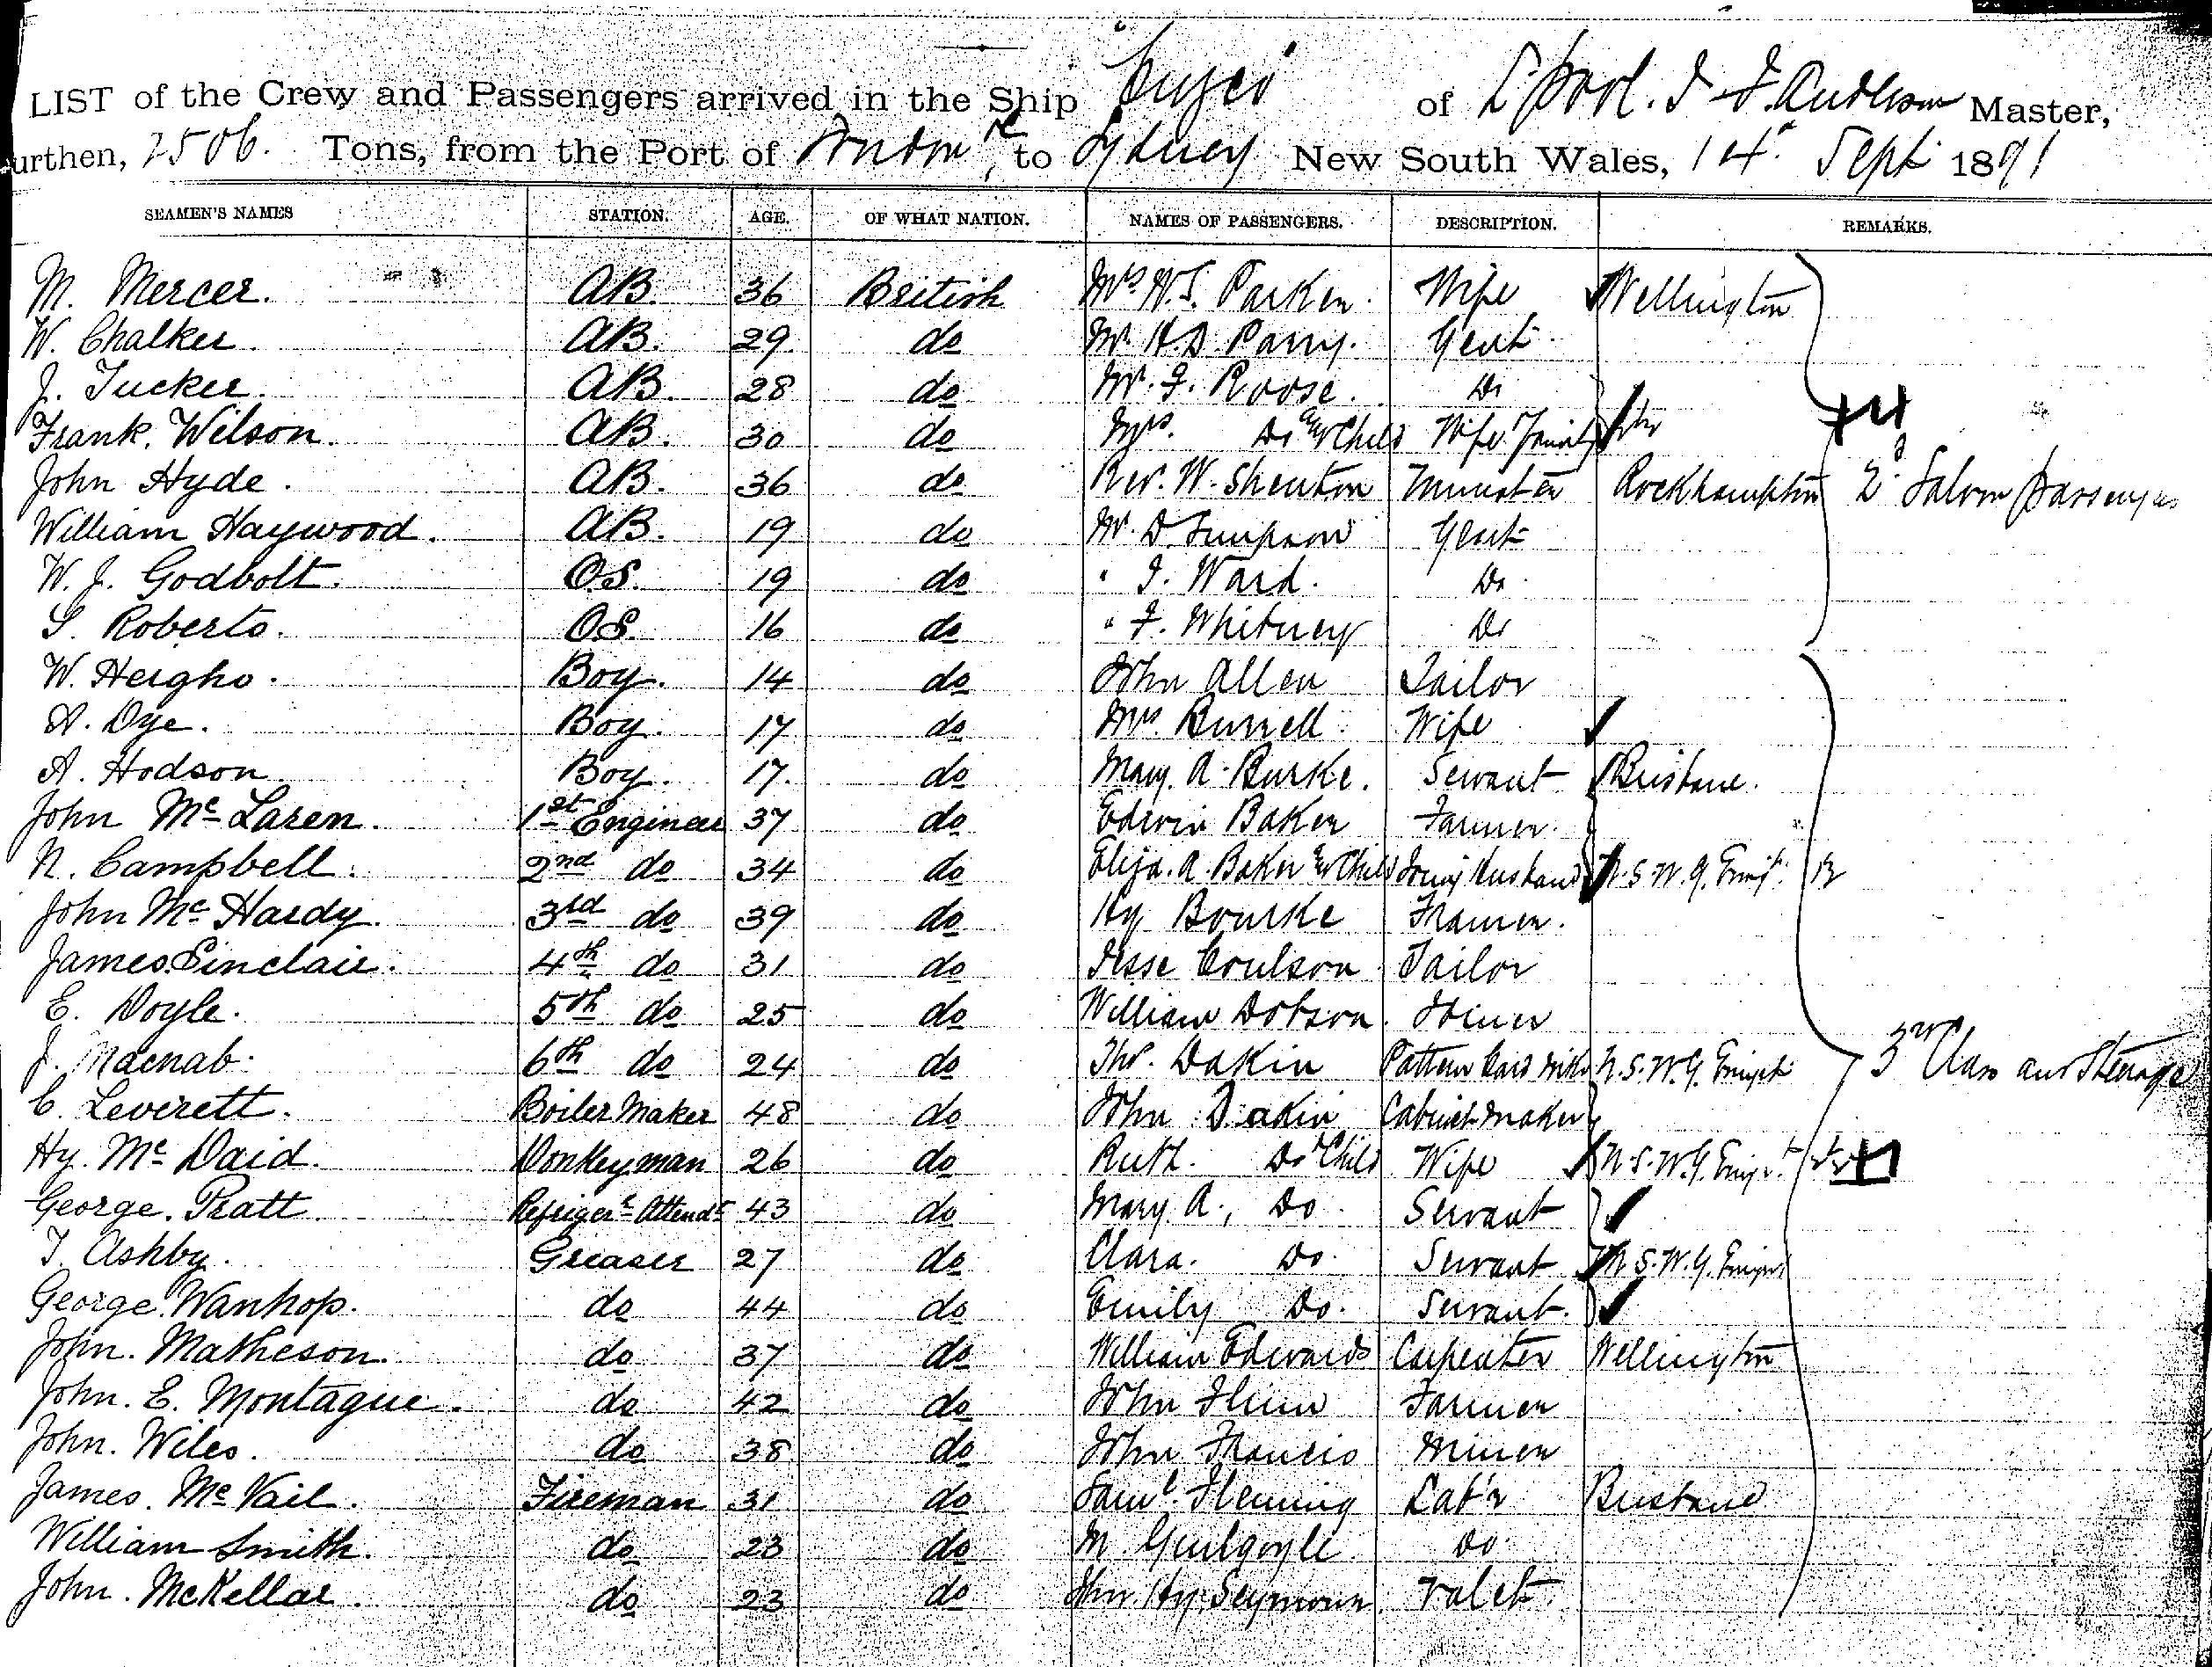 "Cuzco"
LIST of the Crew and Passengers arrived in the Ship of L'pool. J F. Anderson Master,
urthen, 2506. Tons, from the Port of London, to Sydney New South Wales, 14th Sept 1891
SEAMEN'S NAMES STATION. AGE. OF WHAT NATION. NAMES OF PASSENGERS. DESCRIPTION. REMARKS.
M. Mercer. AB. 36 British Mrs Parker. Wife Wellington
W. Chalker. AB. 29 do Mr. H.D. Parry. Gent.
J. Tucker. AB. 28 do Mr. F. Roose. Do
Frank. Wilson. AB. 30 do Mrs. Do & Child Wife
John Hyde. AB. 36 do Rev. W. Shenton Minister Rockhampton 2d Saloon passengers
William Haywood. AB. 19 do Mr. D. Simpson Gent
W. J. Godbolt. O.S. 19 do " J. Ward. Do
S. Roberts. O.S. 16 do " F. Whitney Do
W. Heigho. Boy. 14 do John Allen Tailor
A. Dye. Boy. 17 do Mrs Burrell Wife
A. Hodson. Boy. 17. do Mary A. Burke. Servant Brisbane.
John Mc Laren. 1st Engineer 37 do Edwin Baker Farmer.
N. Campbell. 2nd do 34 do Eliza. A. Baker & Child Joing Husband N.S.W.G. Emigt.
John Mc Hardy. 3rd do 39 do Hy Bourke Framer.
James Sinclair. 4th do 31 do Jesse Coulson Tailor
E. Doyle. 5th do 25 do William Dobson. Joiner
J. Macnab. 6th do 24 do Thos. Dakin Pattern Card Mkr N.S.W.G. Emigt 3rd Class and Steerage
C. Leverett. Boiler Maker 48 do John Dakin Cabinet maker
Hy. Mc Daid. Donkeyman 26 do Ruth. Do & Child Wife N.S.W.G. Emigt.
George. Pratt. Refriger'r Attendt 43 do Mary. A., Do Servant
T. Ashby. Greaser 27 do Clara. Do. Servant N.S.W.G. Emigt
George. Wanhop. do 44 do Emily Do. Servant.
John. Matheson. do 37 do William Edwards Carpenter Wellington
John. E. Montague. do 42 do John Farmer
John. Wiles. do 38 do John Francis Miner
James. Mc Vail. Fireman 31 do Saml. Fleming Lab'r Brisbane
William Smith. do 23 do M. Guilgoyle Do.
John. McKellar. do 23 do Jhn. Hy. Seymour. Valet.